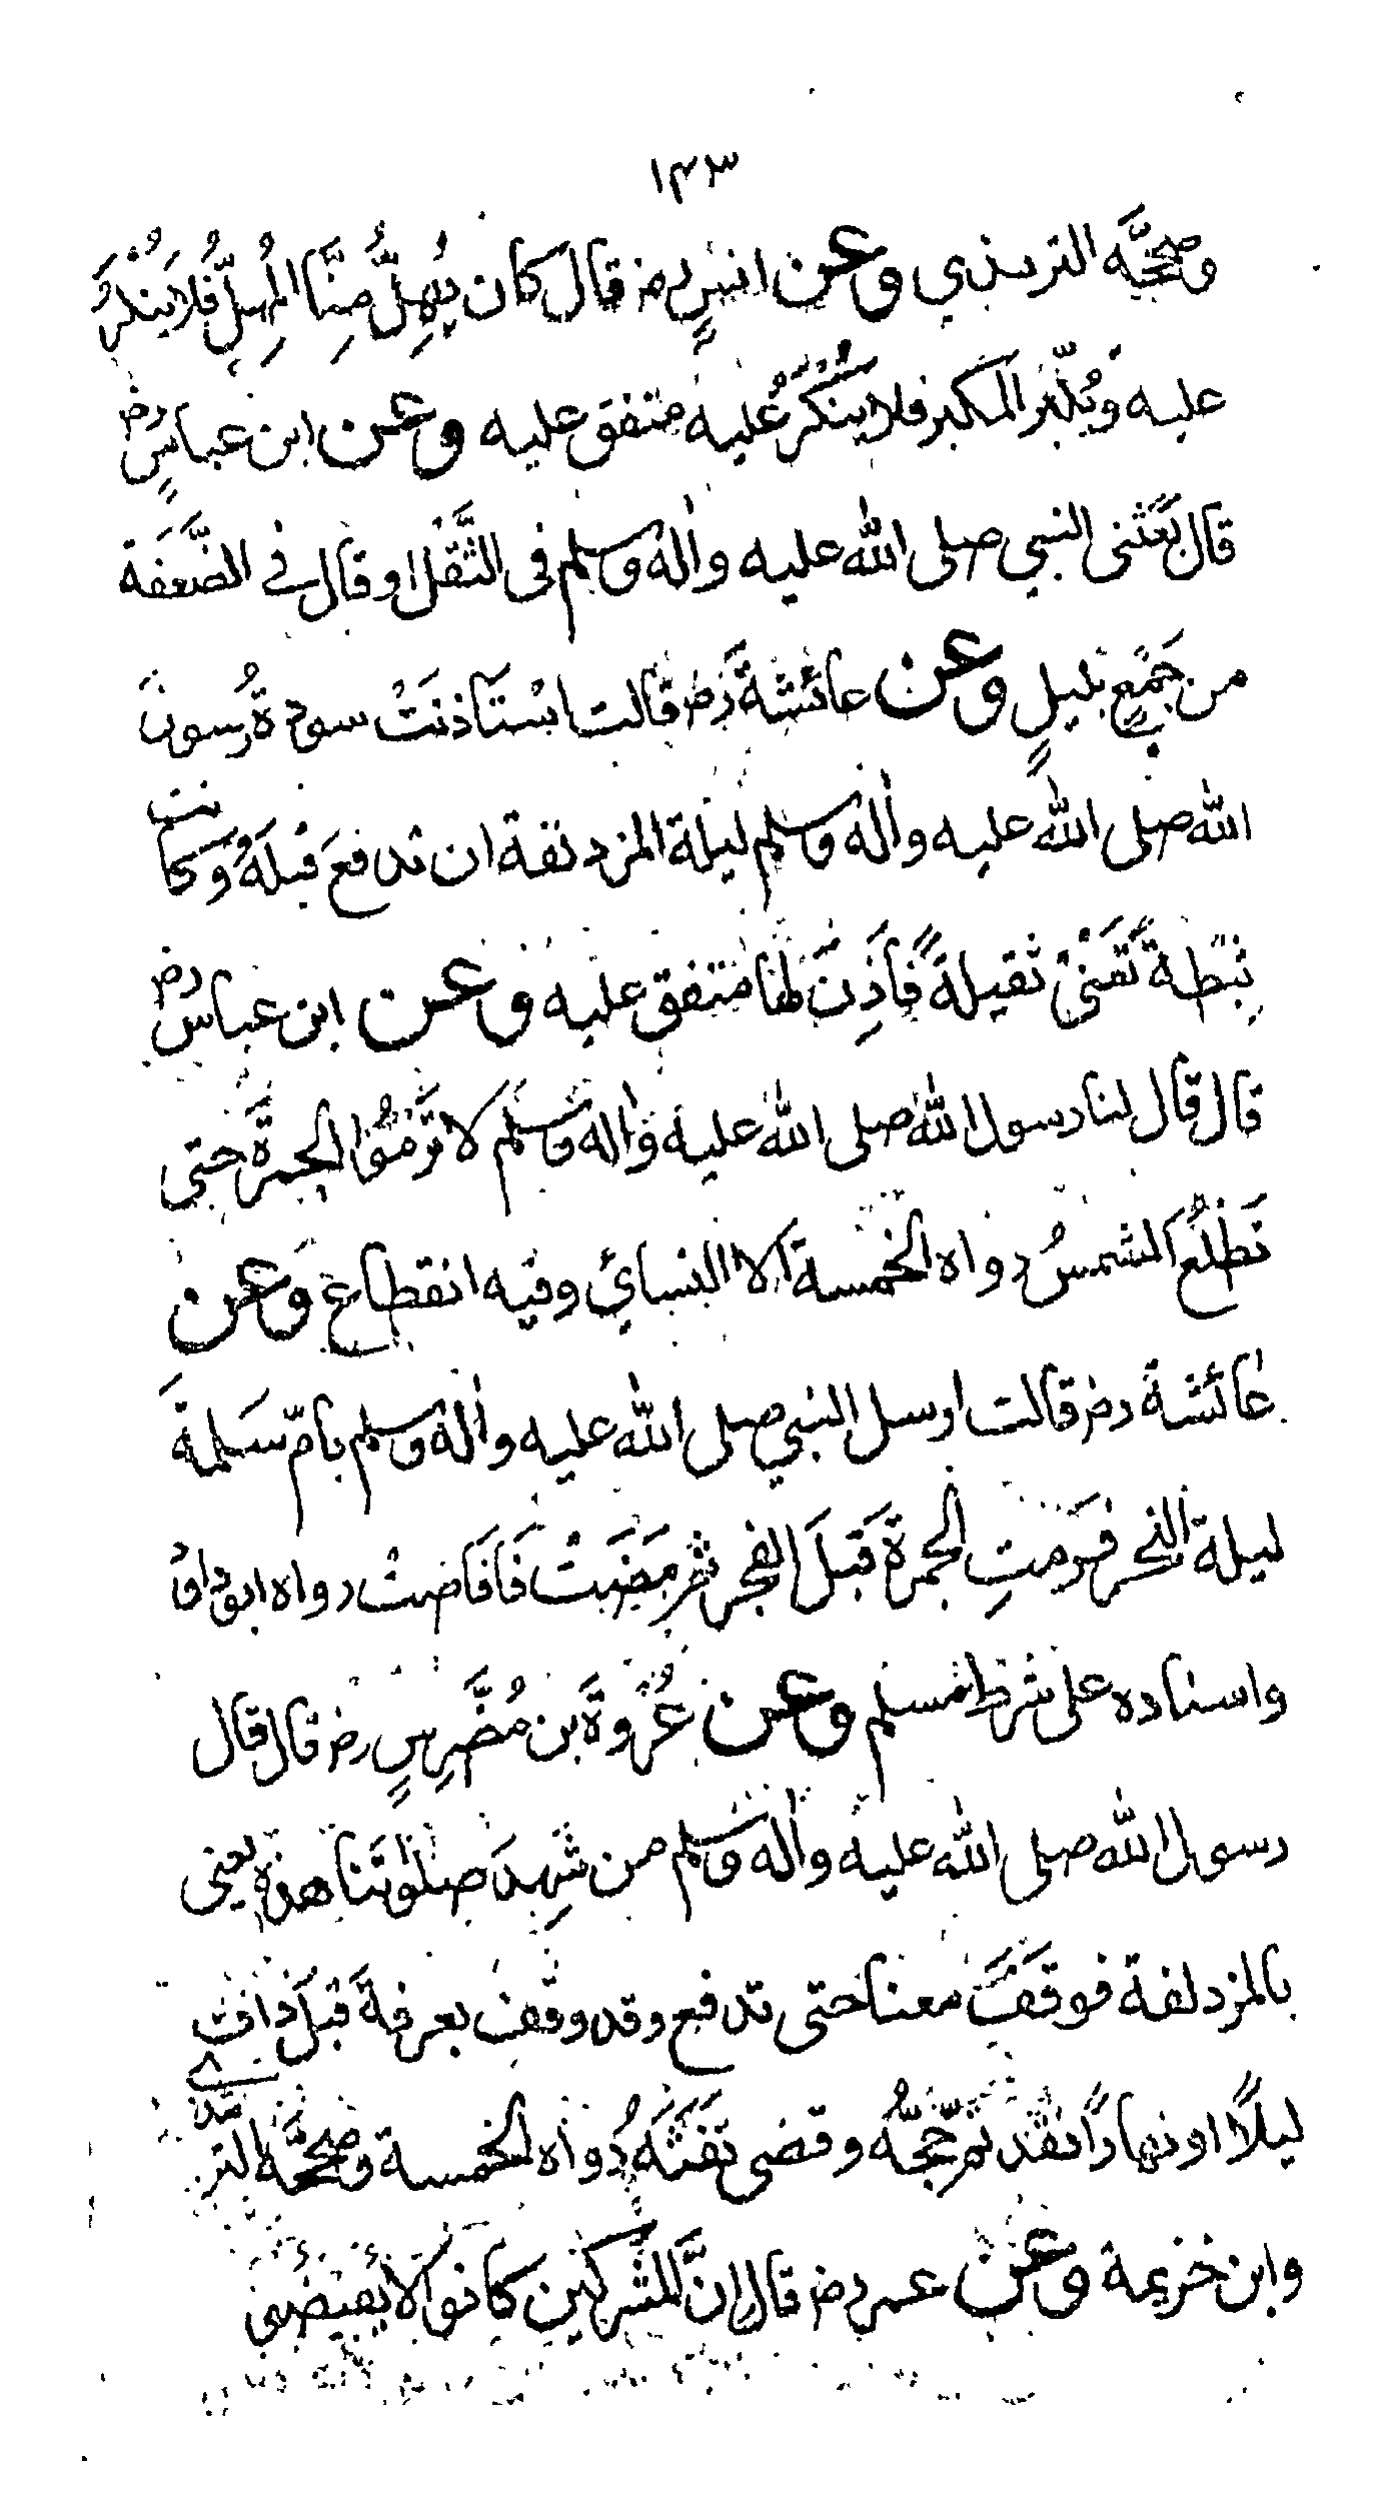 ١٣٣
وصححه الترمذي وعن انسٍ رض قال كان يُهِلُّ مِنَّا المُهِلُّ فلا يُنْكَرُ
عليه ويُكبّر المكبر فلا يُنْكَرُ عليه متفق عليه وعن ابن عباسٍ رض
قال بَعَثَنى النبي صلى الله عليه واله وسلم فى الثَّقَل او قال فے الضَّعَفَة
من جَمْعٍ بليلٍ وعن عائشةَ رض قالت اسْتَأذنَتْ سودةُ رسولَ
الله صلى الله عليه واله وسلم ليلة المزدلفة ان تدفعَ قبلَهُ وكانت
ثَبِطةً تَعْنىْ ثقيلةً فَأَذِنَ لها متفق عليه وعن ابن عباس رض
قال قال لنا رسول الله صلى الله عليه واله وسلم لا تَرْمُوا الجمرةَ حتى
تَطْلُعَ الشمسُ رواه الخمسة الا النسائي وفيه انقطاع وعن
عائشة رض قالت ارسل النبي صلى الله عليه واله وسلم بامّ سَلمةَ
ليلة النحر فرَمَتِ الجمرةَ قبلَ الفجر ثم مَضَتْ فَأفَاضتْ رواه ابو داؤد
واسناده على شرط مسلم وعن عُرْوةَ بن مُضَرِّسٍ رض قال قال
رسول الله صلى الله عليه واله وسلم من شَهِدَ صلوٰتَنا هذه يعنى
بالمزدلفة فوقَفَ معنا حتى ندفع وقد وقف بعرفةَ قبلَ ذٰلك
ليلًا او نهارًا فقد تم حَجُّهُ وقضى تَفَثَهُ رواه الخمسة وصححه الترمذے
وابن خزيمة وعن عمر رض قال اِنَّ المشركين كانوا لا يُفيضُون